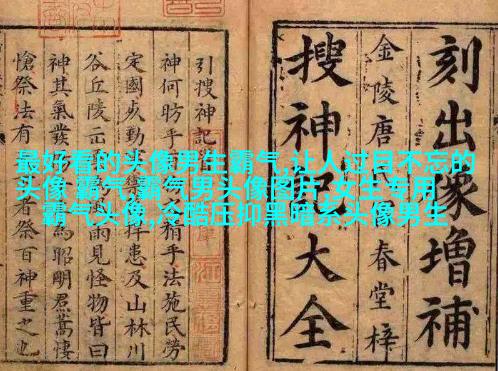 刻出象增補
金陵唐氏春堂梓
搜神記大全
引搜神記
神何昉乎稍乎法施民勞
定國勳捍患及山林川
谷丘陵雨見怪物皆曰
神其氣發為昭明焄蒿悽
愴祭法有者祭百神重之也
最好看的头像男生霸气,让人过目不忘的
头像,霸气,霸气男头像图片,女生专用
霸气头像,冷酷压抑黑暗系头像男生